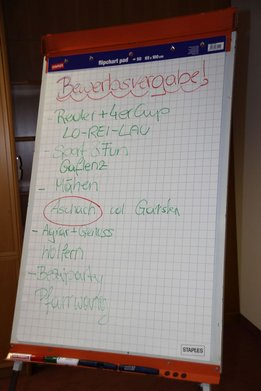 STAPLES flipchart pad
Bewerbsvergabe!
- Reuter + 4er Cup
LO-REI-LAU
- Sport & Fun
Gaflenz
- Mähen
Aschach und Garsten
- Agrar + Genuss
Wolfern
- Bezirksparty
Pfarrwang
STAPLES